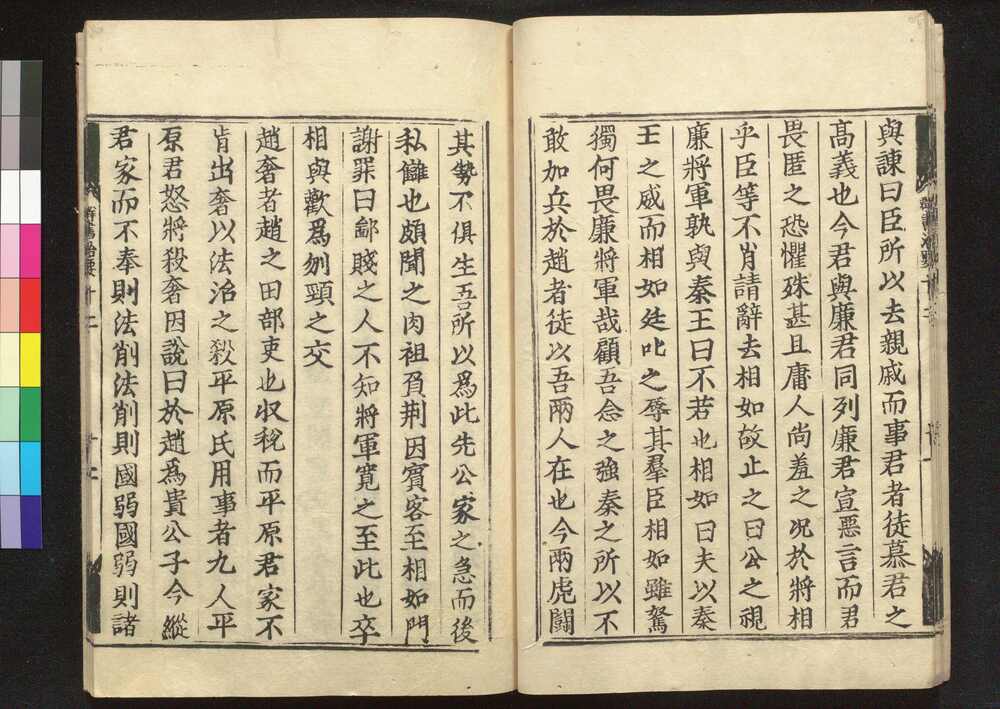 與諫曰臣所以去親戚而事君者徒慕君之
高義也今君與廉君同列廉君宣惡言而君
畏匿之恐懼殊甚且庸人尚羞之况於將相
乎臣等不肖請辭去相如故止之曰公之視
廉將軍孰與秦王曰不若也相如曰夫以秦
王之威而相如廷叱之辱其羣臣相如雖駑
獨何畏廉將軍哉顧吾念之強秦之所以不
敢加兵於趙者徒以吾兩人在也今兩虎鬪
其勢不俱生吾所以爲此先公家之急而後
私讎也頗聞之肉袒負荆因賓客至相如門
謝罪曰鄙賤之人不知將軍寬之至此也卒
相與歡爲刎頸之交
趙奢者趙之田部吏也収稅而平原君家不
肯出奢以法治之殺平原氏用事者九人平
原君怒將殺奢因說曰於趙爲貴公子今縱
君家而不奉則法削法削則國弱國弱則諸
群書治要十二